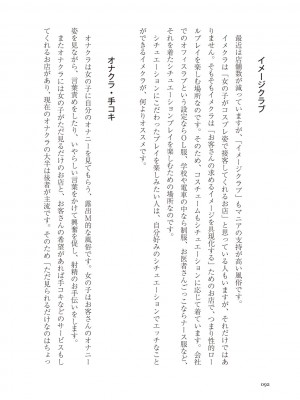 イメージクラブ
最近は店舗数が減っていますが、「イメージクラブ」もマニアの支持が高い風俗です。
イメクラは「女の子がコスプレ姿で接客してくれるお店」と思っている人もいますが、それだけではあ
りません。そもそもイメクラは「お客さんの求めるイメージを具現化する」ためのお店で、つまり性的ロー
ルプレイを楽しむ場所なのです。そのため、コスチュームもシチュエーションに応じて着ています。会社
でのオフィスラブという設定ならOL服、学校や電車の中なら制服、お医者さんごっこならナース服など、
それを着たシチュエーションプレイを楽しむための場所なのです。
シチュエーションにこだわったプレイを楽しみたい人は、自分好みのシチュエーションでエッチなこと
ができるイメクラが、何よりオススメです。
オナクラ・手コキ
オナクラは女の子に自分のオナニーを見てもらう、露出M的な風俗です。女の子はお客さんのオナニー
姿を見ながら、言葉責めをしたり、いやらしい言葉をかけて興奮を促し、射精のお手伝いをします。
またオナクラには女の子がただ見るだけのお店と、お客さんの希望があれば手コキなどのサービスもし
てくれるお店があり、現在のオナクラの大半は後者が主流です。そのため「ただ見られるだけなのはちょっ
092